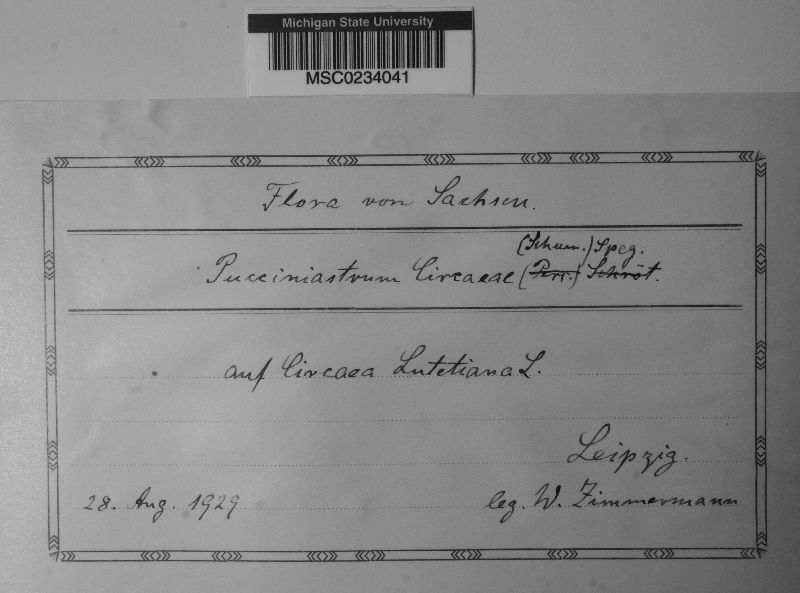 Michigan State University
MSC0234041
Flora von Sachsen.
(Schum.) Speg.
Pucciniastrum Circaeae (Pers.) Schröt.
auf Circaea Lutetiana L.
Leipzig.
28. Aug. 1929 leg. W. Zimmermann